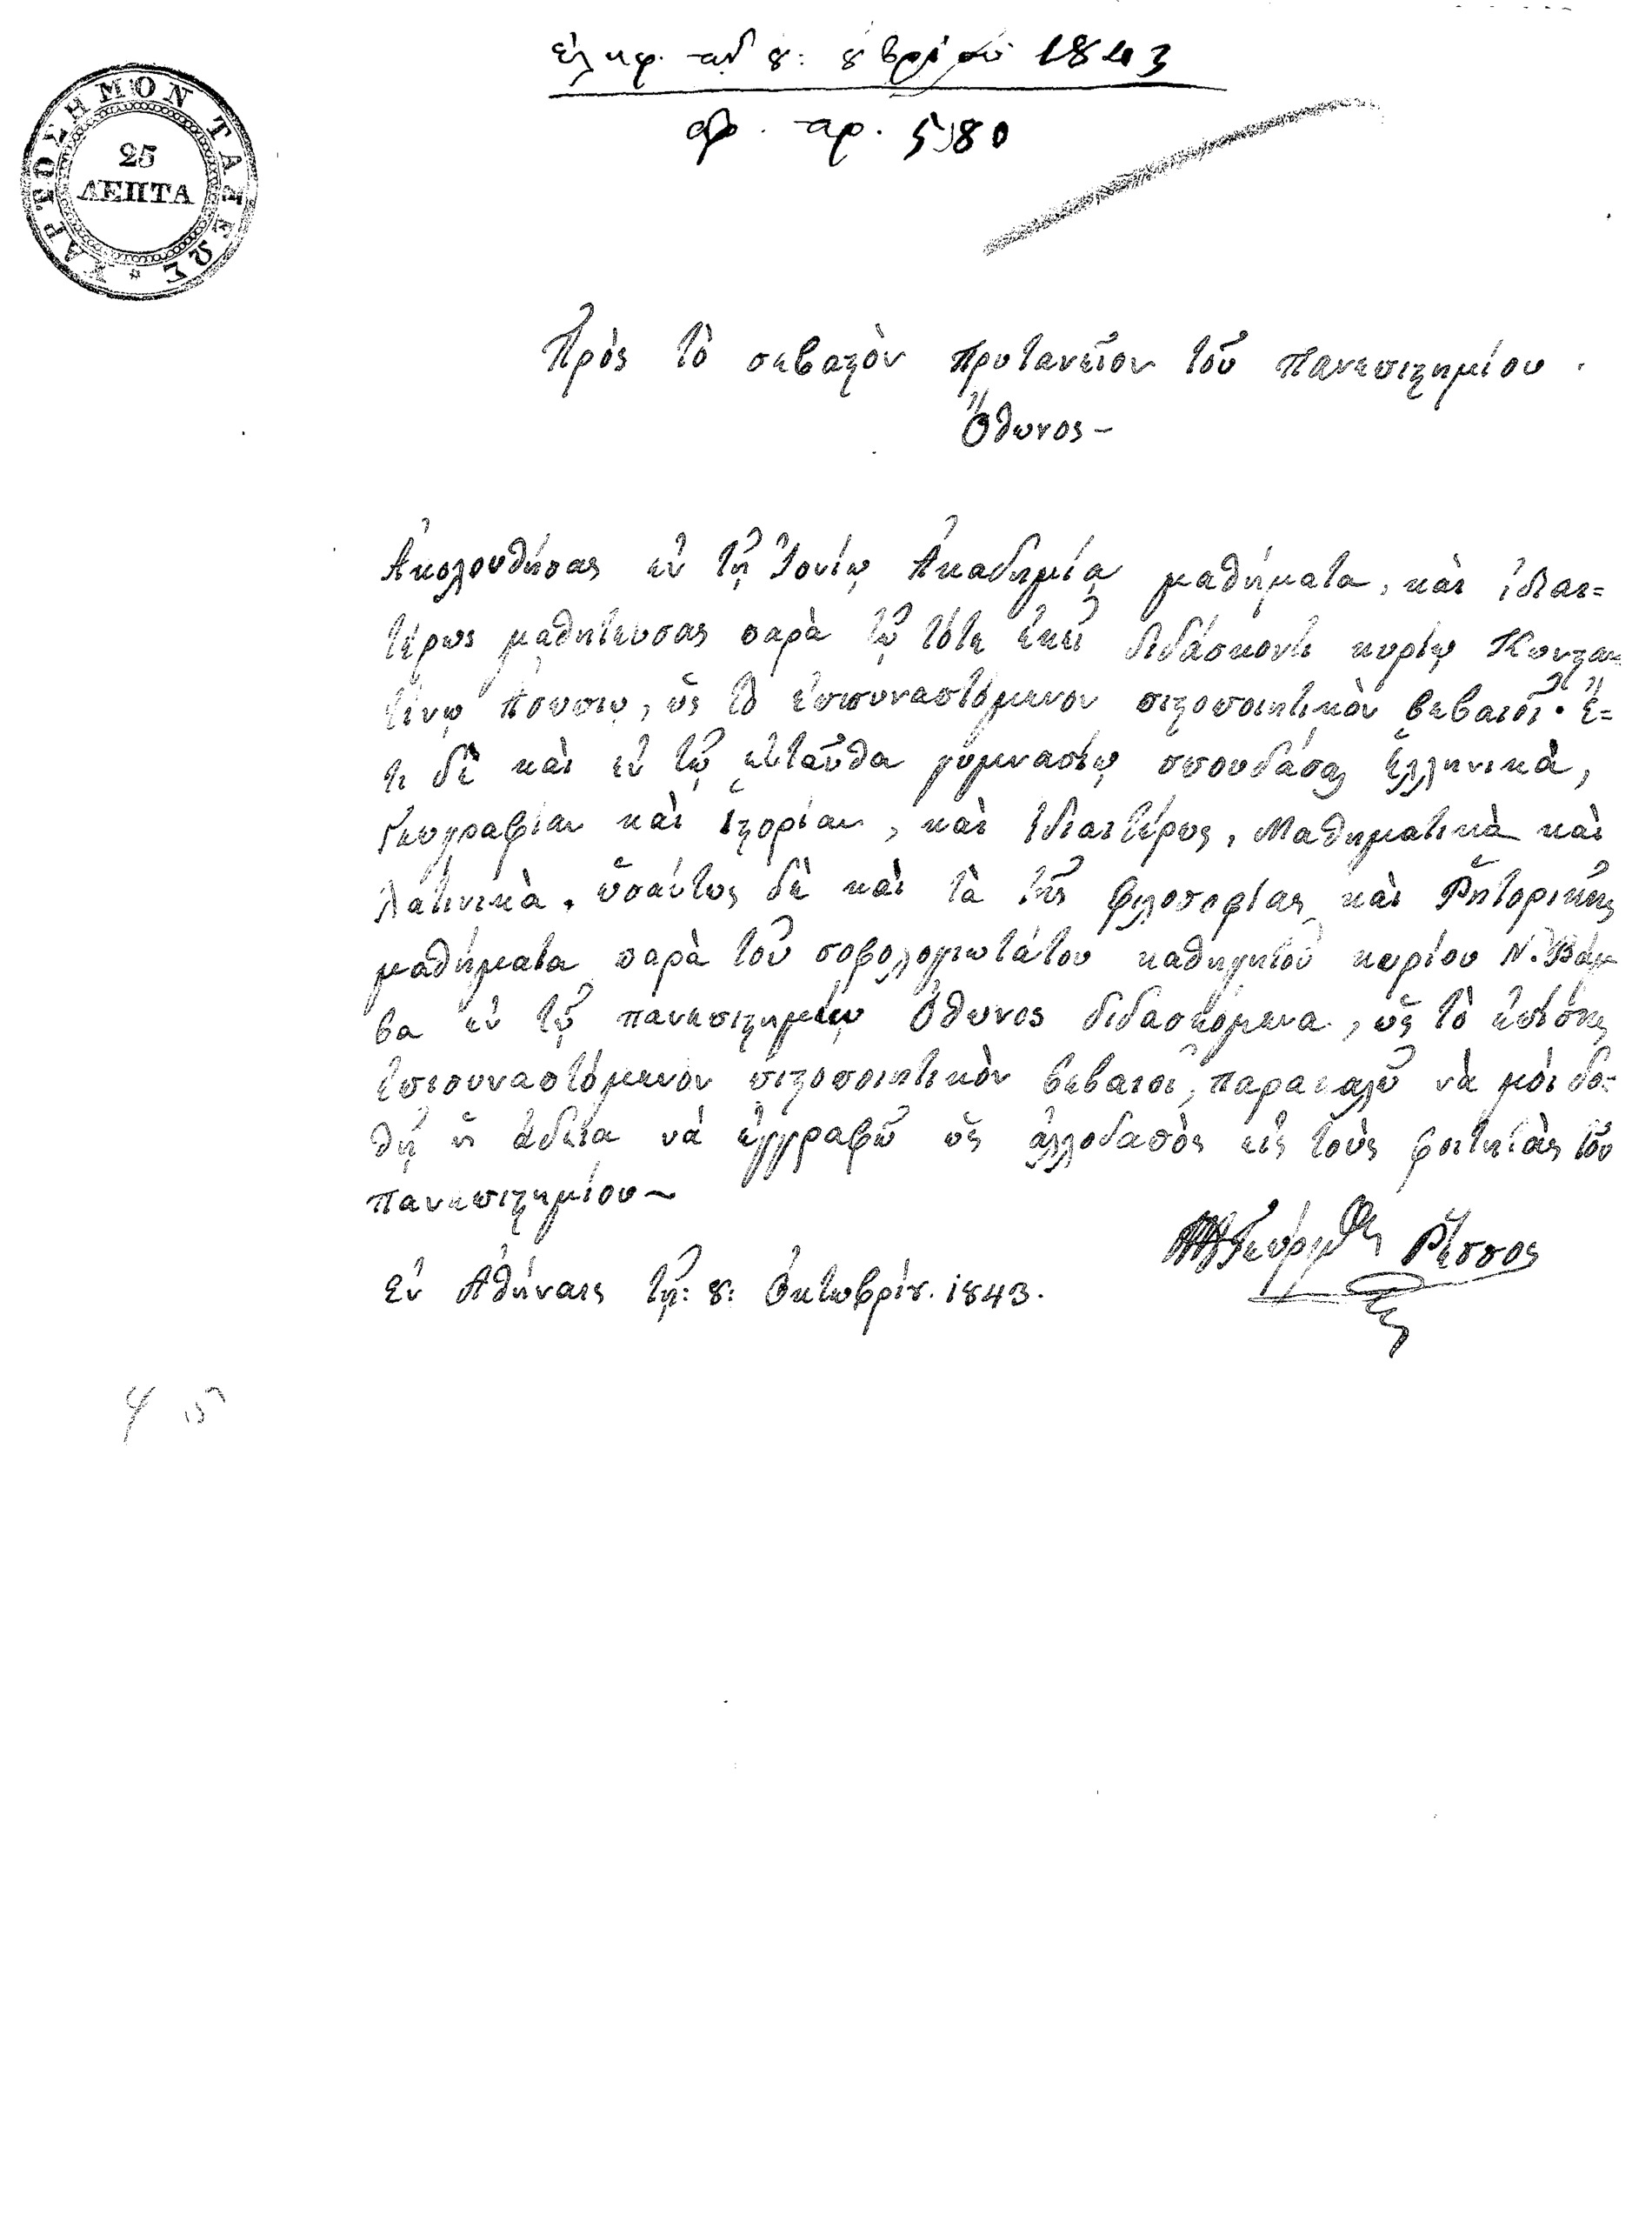 ἐλήφ. τῇ 8: 8βρίου 1843
ἀρ. πρ. 5980
ΧΑΡΤΟΣΗΜΟΝ ΤΑΞΕΩΣ
25
ΛΕΠΤΑ
Πρὸς τὸ σεβαστὸν Πρυτανεῖον τοῦ Πανεπιστημίου
Ὄθωνος –
Ἀκολουθήσας ἐν τῇ Ἰονίῳ Ἀκαδημίᾳ μαθήματα, καὶ ἰδιαι=
τέρως μαθητεύσας παρὰ τῷ τότε ἐκεῖ διδάσκοντι κυρίῳ Κωνσταν
τίνῳ, ὡς τὸ ἐπισυναπτόμενον πιστοποιητικὸν βεβαιοῖ· ἔ=
τι δὲ καὶ ἐν τῷ ἐνταῦθα γυμνασίῳ σπουδάσας ἑλληνικὰ,
Γεωγραφίαν καὶ ἱστορίαν, καὶ ἰδιαιτέρως, Μαθηματικὰ καὶ
λατινικὰ. ὡσαύτως δὲ καὶ τὰ τῆς φιλοσοφίας καὶ Ῥητορικῆς
μαθήματα παρὰ τοῦ σοφολογιωτάτου καθηγητοῦ κυρίου Ν. Βάμ
βα ἐν τῷ πανεπιστημίῳ Ὄθωνος διδασκόμενα, ὡς τὸ ἐπίσης
ἐπισυναπτόμενον πιστοποιητικὸν βεβαιοῖ, παρακαλῶ νὰ μὸι δο=
θῇ ἡ ἄδεια νὰ ἐγγραφῶ ὡς ἀλλοδαπὸς εἰς τοὺς φοιτητὰς τοῦ
Πανεπιστημίου~
Γεώργιος Ῥῖππος
Ἐν Ἀθήναις τῇ: 8: Ὀκτωβρίου. 1843.